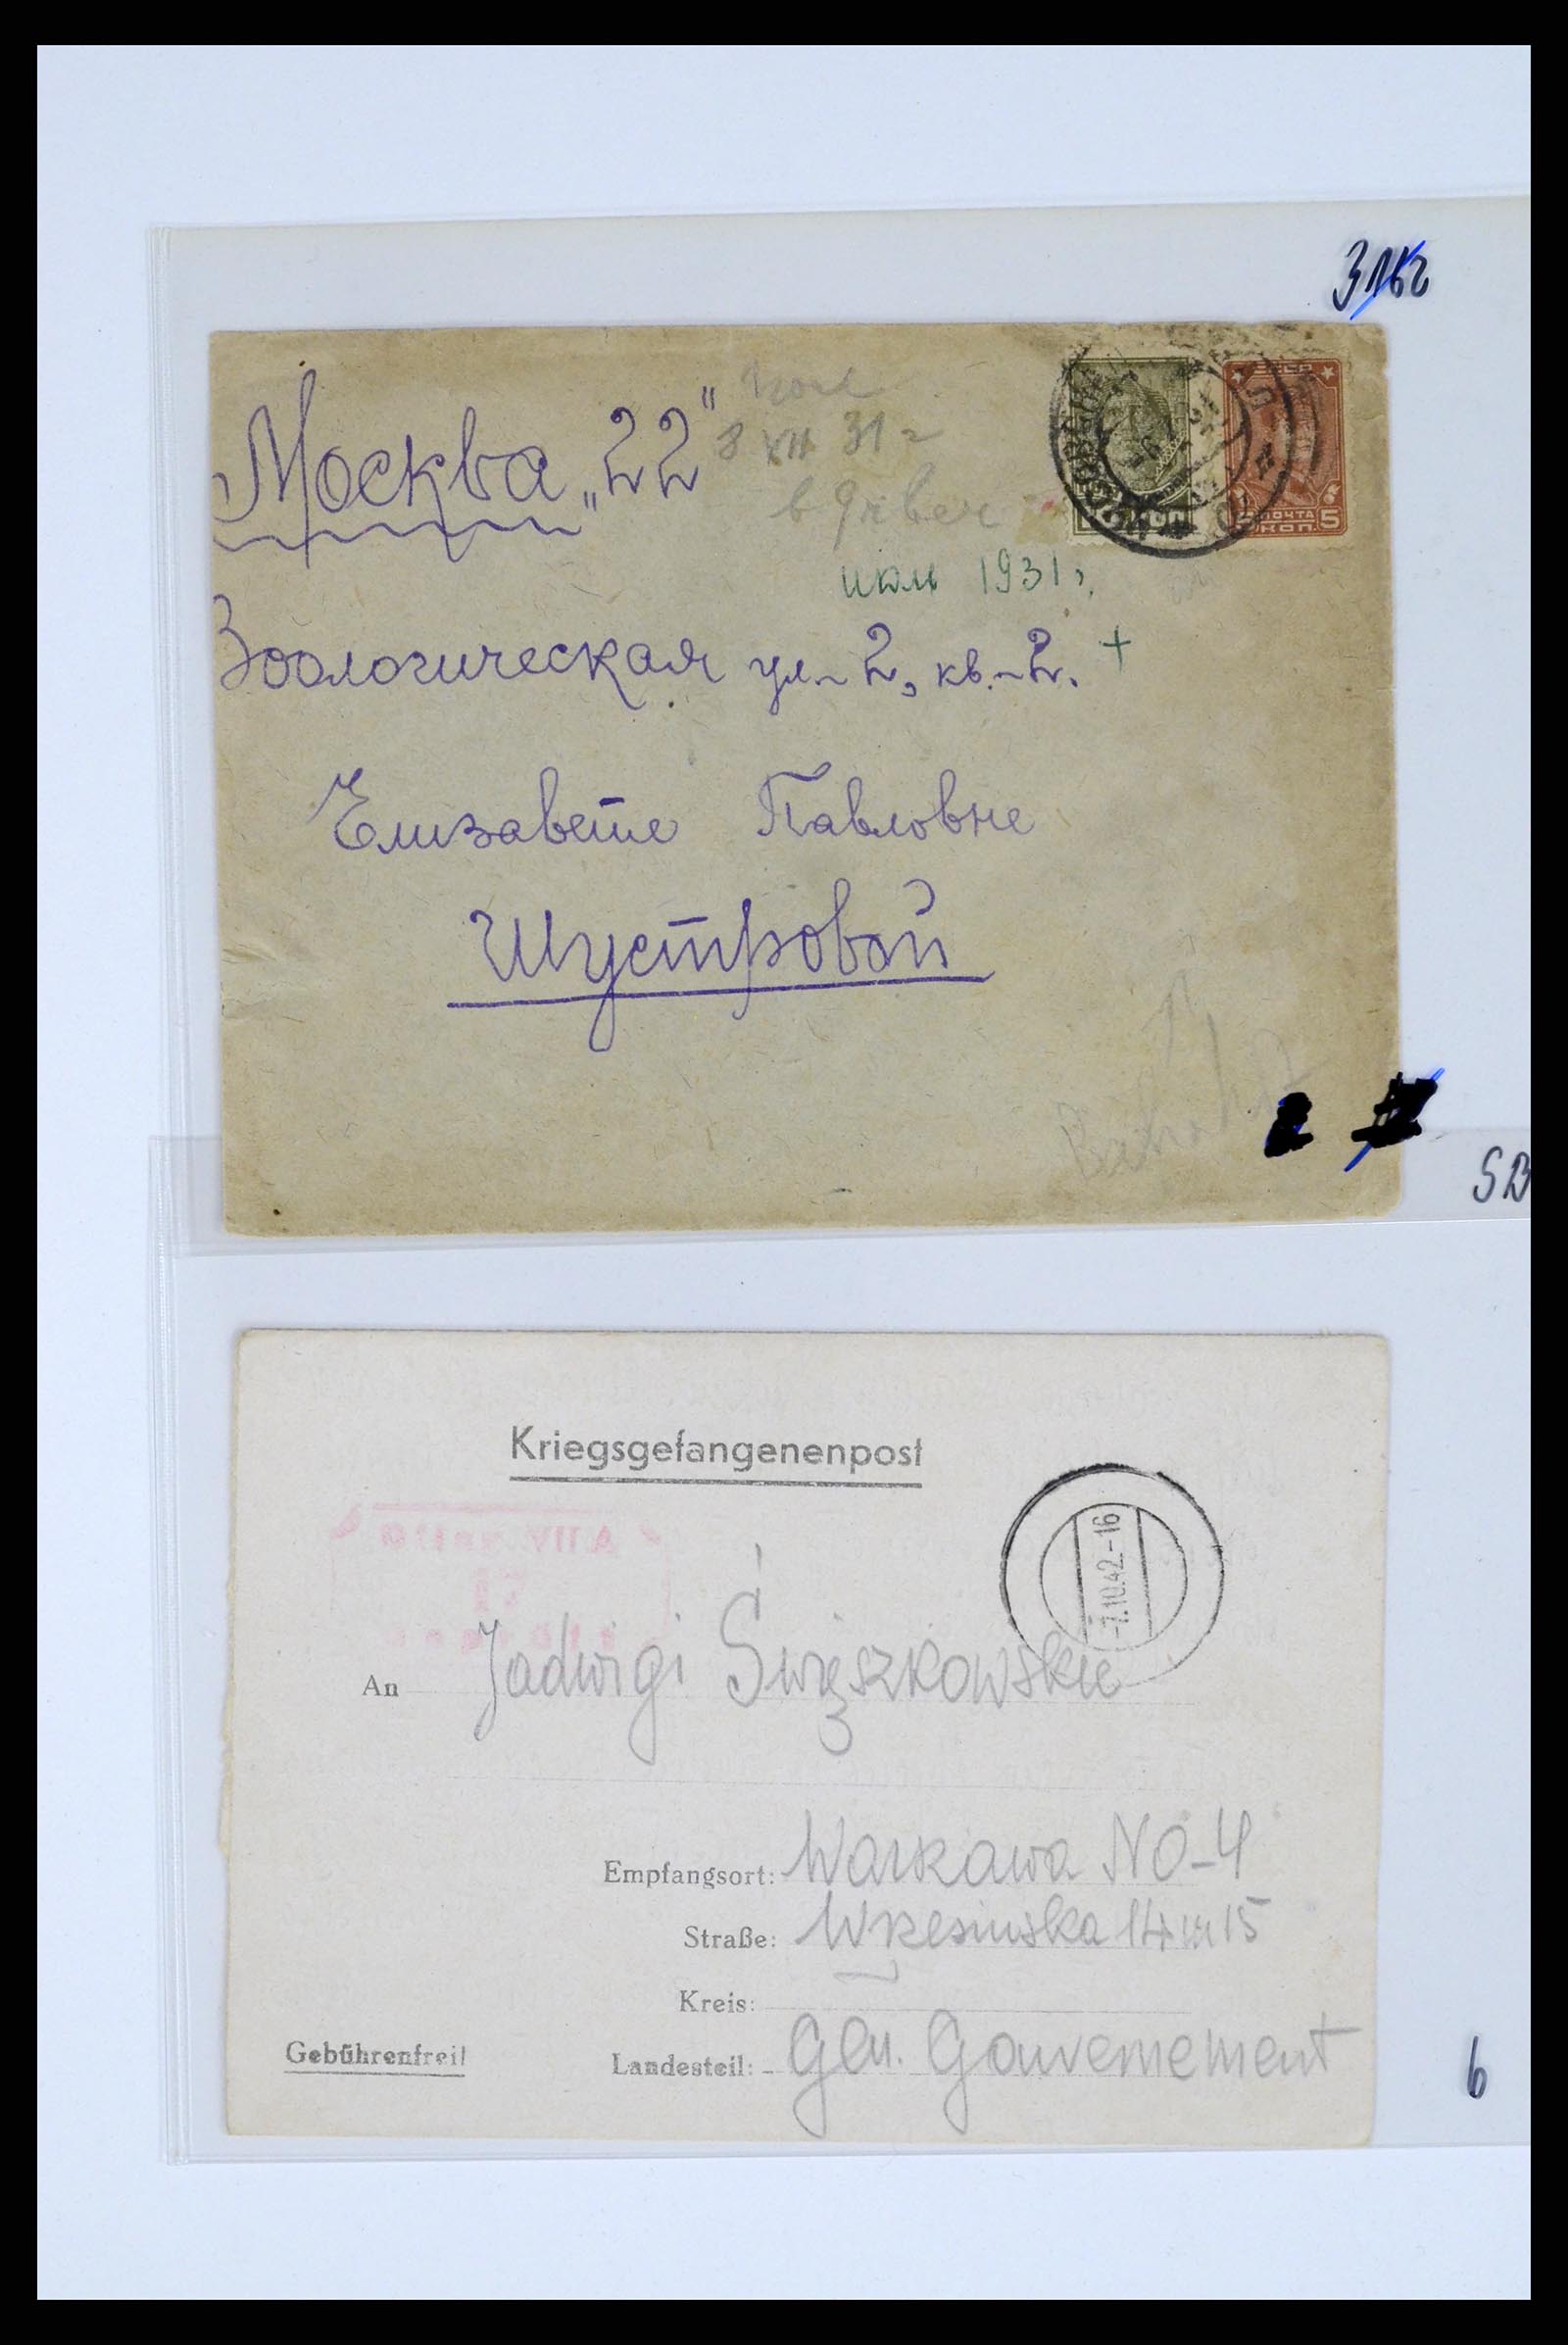 Москва „22"
8 XII 31 г
июль 1931 г.
Зоологическая ул-2, кв.-2. +
Елизавете Павловне
Шустровой
ПОЧТА
5 КОП. 5
SB
Kriegsgefangenenpost
-7.10.42.-16
An Jadwigi Święszkowskie
Empfangsort: Warszawa NO-4
Straße: Wrzesinska 14 m 15
Kreis:
Gebührenfrei!
Landesteil: Gen. Gouvernement
6